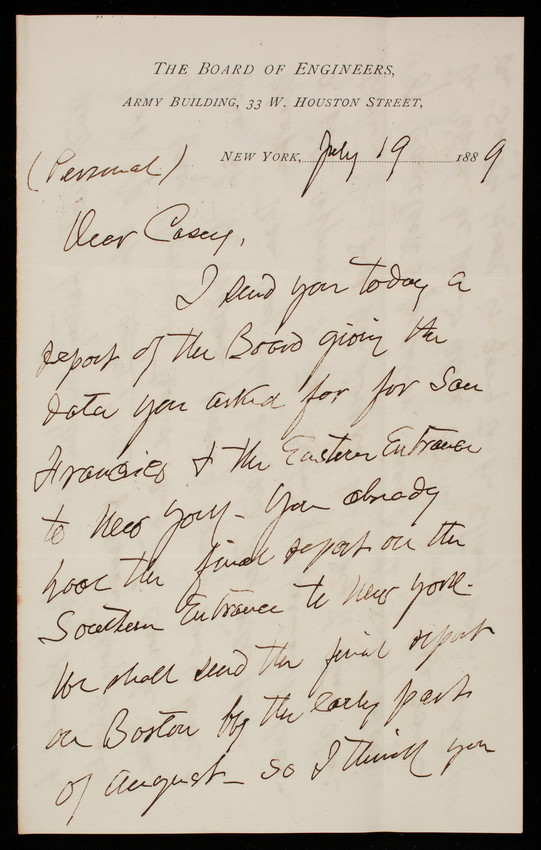 THE BOARD OF ENGINEERS,
ARMY BUILDING, 33 W. HOUSTON STREET,
NEW YORK, July 19 1889
(Personal)
Dear Casey,
I send you today a
report of the Board giving the
data you asked for for San
Francisco & the Eastern Entrance
to New York - You already
have the final report on the
Southern Entrance to New York -
We shall send the final report
on Boston by the early part
of August - So I think you